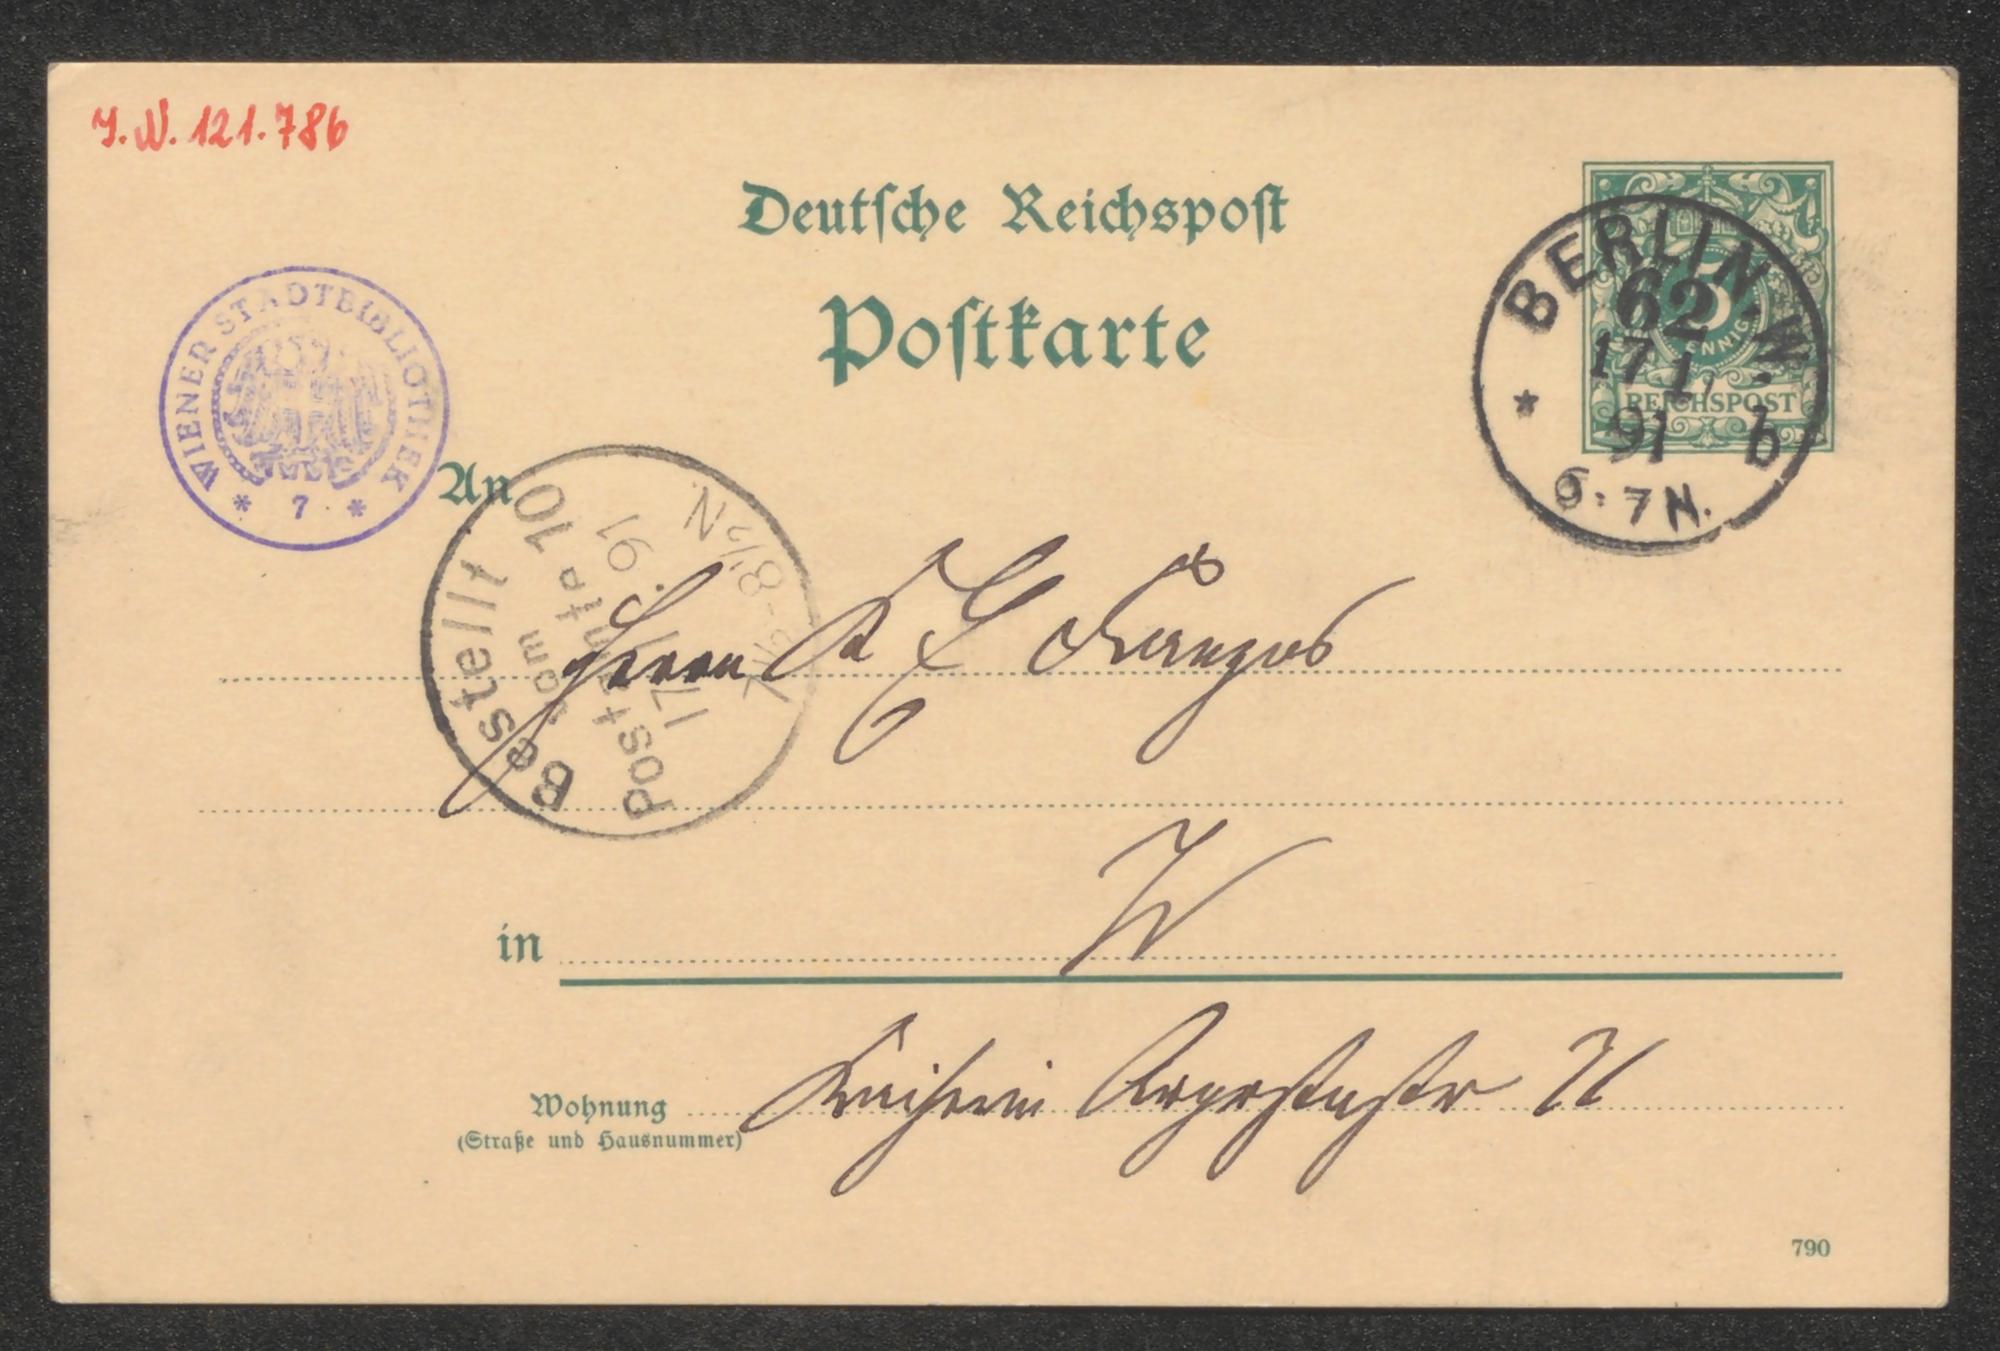 J.N. 121.786
Deutsche Reichspost
Postkarte
WIENER STADTBIBLIOTHEK
* 7 *
5
PFENNIG
REICHSPOST
BERLIN. W.
62
17 1
91
b
6-7N.
An
Bestellt
vom
Postamte
10
17 1 91
7½-8½N
Herrn K E Franzos
in W
Wohnung Kaiserin Augustastr 71
(Straße und Hausnummer)
790